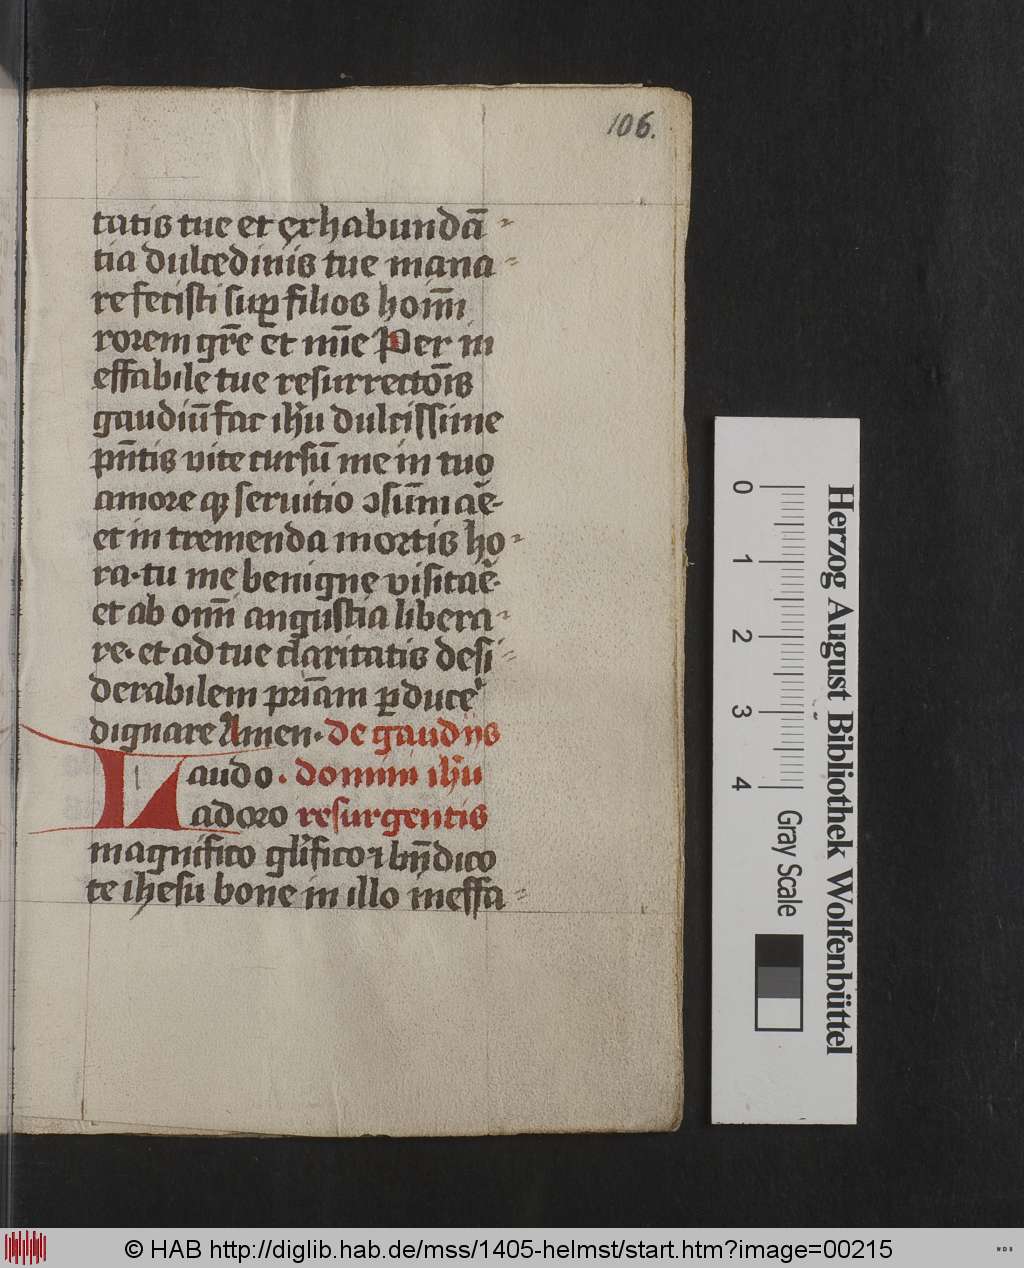 106.
tatis tue et exhabundā⸗
tia dulcedinis tue mana⸗
re fecisti suꝑ filios hoīm
rorem gr̄e et mīe Per in
effabile tue resurrectōis
gaudiū fac ih̄u dulcissime
pn̄tis vite cursū me in tuo
amore ꝙ seruitio ↄsūmaē⸗
et in tremenda mortis ho⸗
ra·tu me benigne visitaē·
et ab om̄i angustia libera⸗
re·et ad tue claritatis desi⸗
derabilem pr̄iam ꝑducē
dignare Amen·de gaudijs
Laudo·domini ih̄u
adoro resurgentis
magnifico gl̄ifico ⁊ bn̄dico
te ihesu bone in illo ineffa⸗
0
1
2
3
4
Gray Scale
Herzog August Bibliothek Wolfenbüttel
© HAB http://diglib.hab.de/mss/1405-helmst/start.htm?image=00215